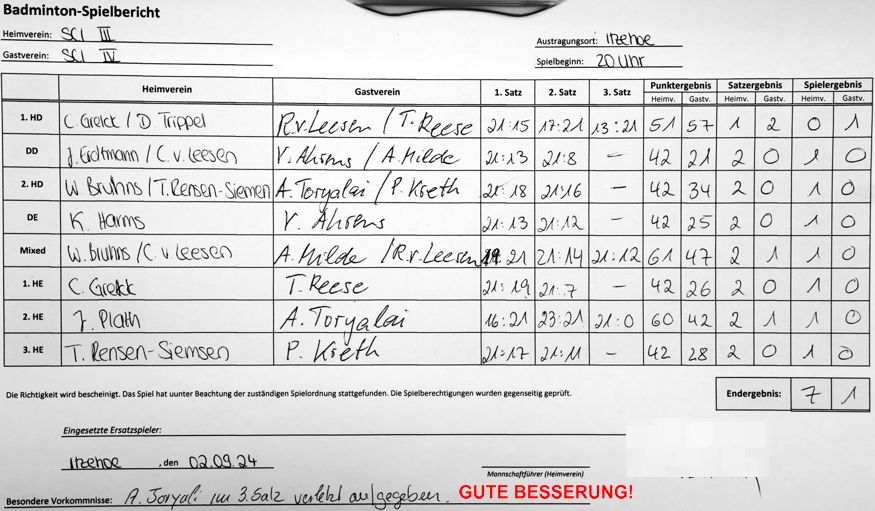 Badminton-Spielbericht
Heimverein: SCI III
Gastverein: SCI IV
Austragungsort: Itzehoe
Spielbeginn: 20 Uhr
Heimverein Gastverein 1. Satz 2. Satz 3. Satz Punktergebnis Satzergebnis Spielergebnis
Heimv. Gastv. Heimv. Gastv. Heimv. Gastv.
1. HD C. Grekk / D. Trippel R.v.Leesen / T. Reese 21:15 17:21 13:21 51 57 1 2 0 1
DD J. Erdtmann / C. v. Leesen V. Ahrens / A. Milde 21:13 21:8 – 42 21 2 0 1 0
2. HD W. Bruhns / T. Rensen-Siemsen A. Toryalai / P. Kseth 21:18 21:16 – 42 34 2 0 1 0
DE K. Harms V. Ahrens 21:13 21:12 – 42 25 2 0 1 0
Mixed W. Bruhns / C. v. Leesen A. Milde / R.v.Leesen 19:21 21:14 21:12 61 47 2 1 1 0
1. HE C. Grekk T. Reese 21:19 21:7 – 42 26 2 0 1 0
2. HE J. Plath A. Toryalai 16:21 23:21 21:0 60 42 2 1 1 0
3. HE T. Rensen-Siemsen P. Kseth 21:17 21:11 – 42 28 2 0 1 0
Die Richtigkeit wird bescheinigt. Das Spiel hat uunter Beachtung der zuständigen Spielordnung stattgefunden. Die Spielberechtigungen wurden gegenseitig geprüft.
Endergebnis: 7 1
Eingesetzte Ersatzspieler:
Itzehoe , den 02.09.24
Mannschaftführer (Heimverein)
Besondere Vorkommnisse: A. Toryali im 3. Satz verletzt aufgegeben. GUTE BESSERUNG!